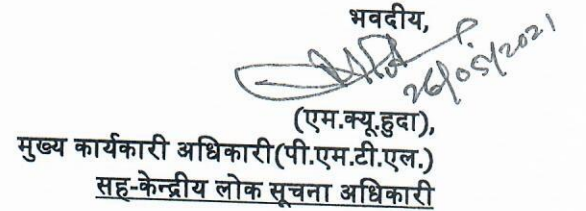 भवदीय,
26/05/2021
(एम.क्यू.हुदा),
मुख्य कार्यकारी अधिकारी(पी.एम.टी.एल.)
सह-केन्द्रीय लोक सूचना अधिकारी